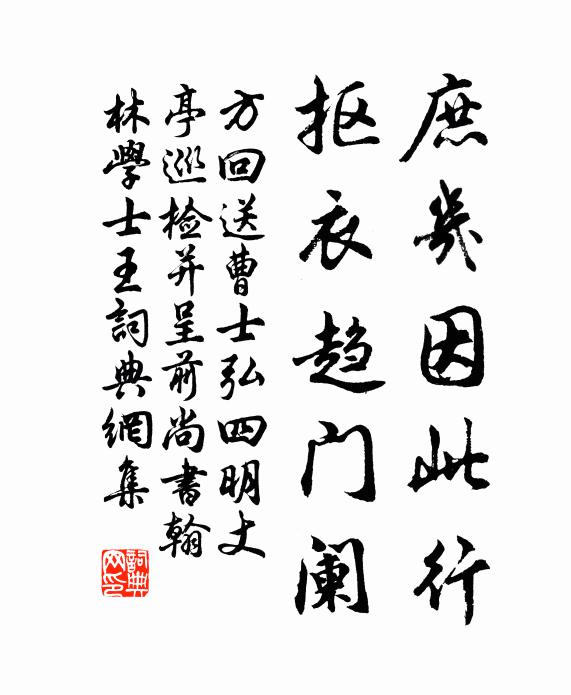 庶幾因此行
抠衣趋门阑
方回送曹士弘四明丈
亭巡检并呈前尚書翰
林學士王詞典網集
詞典网印